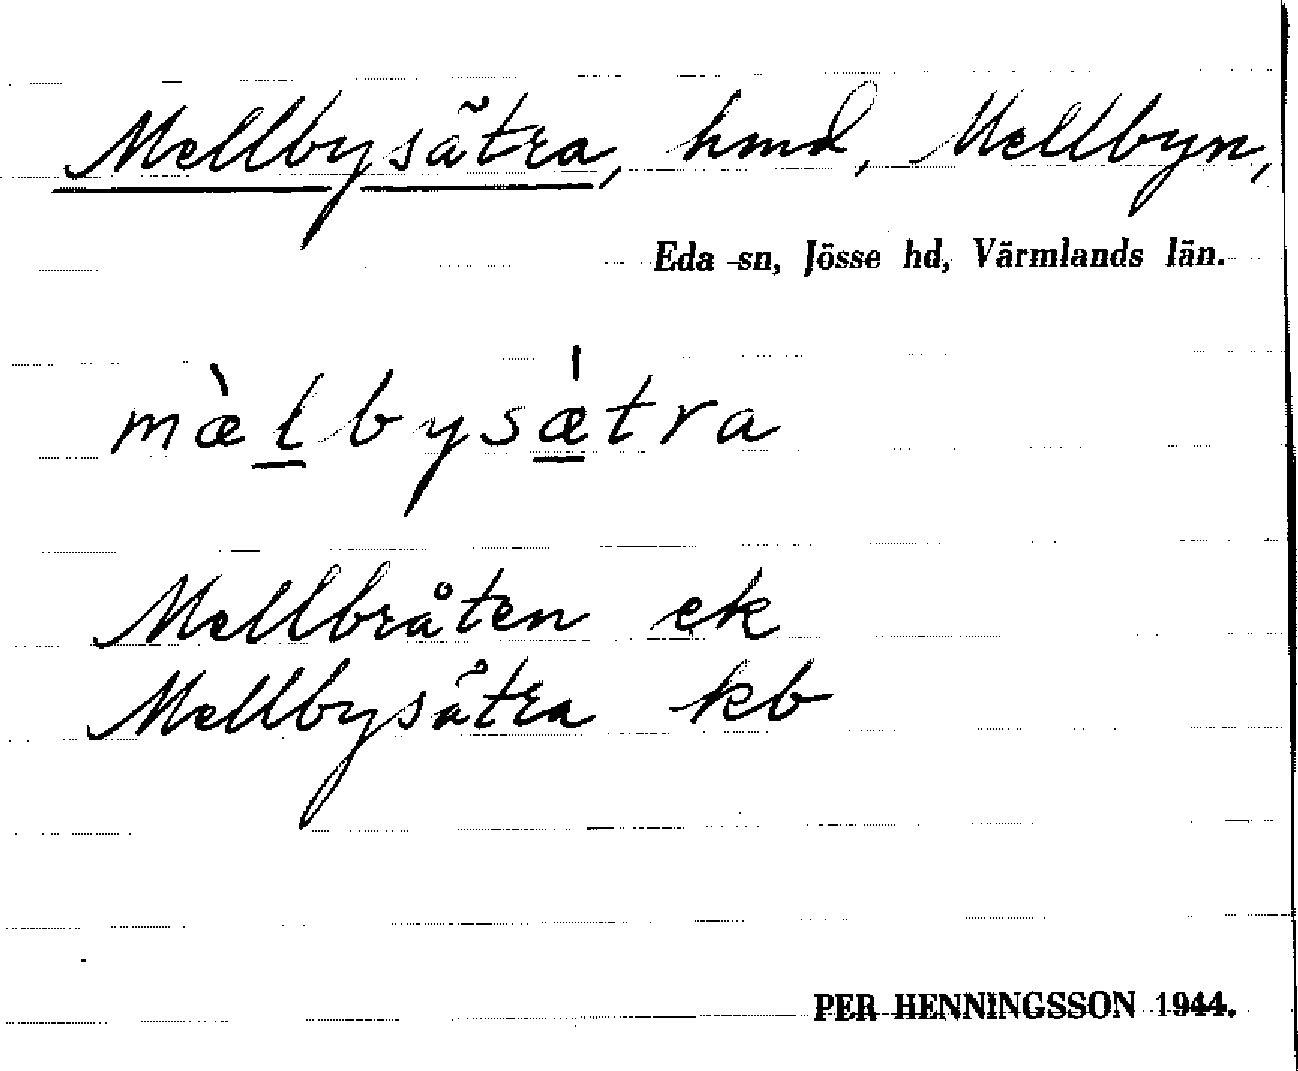 Mellbysätra, hmd, Mellbyn,
Eda sn, Jösse hd, Värmlands län.
mæ̀l̲bysǽ̲tra
Mellbråten ek
Mellbysätra kb
PER HENNINGSSON 1944.